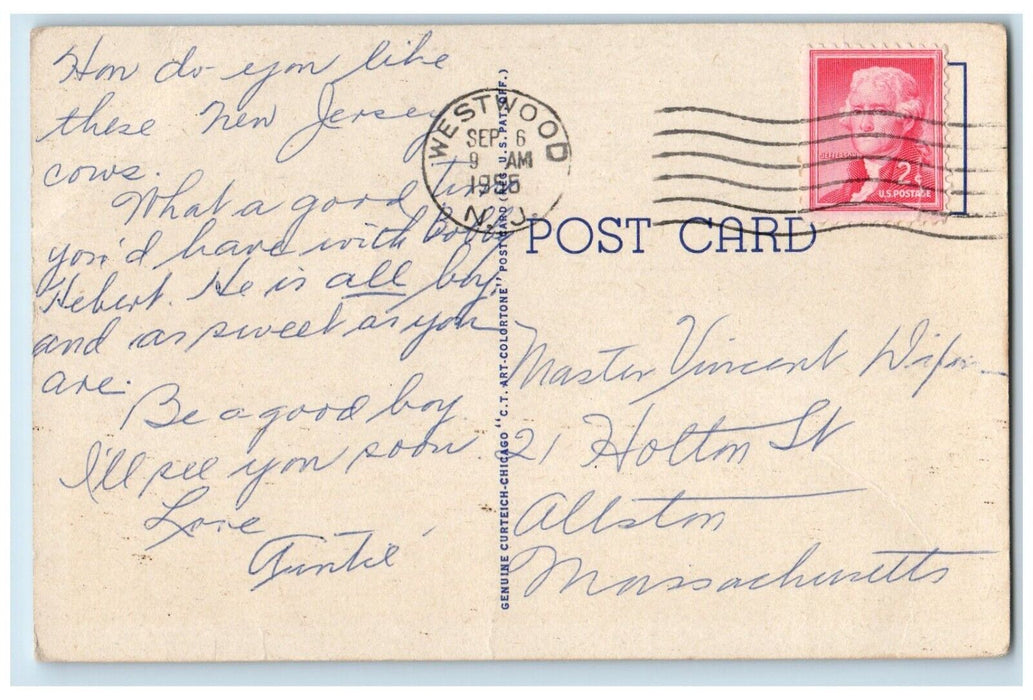 How do you like
these New Jersey
cows.
What a good time
you'd have with
Hebert. He is all boy
and as sweet as you
are.
Be a good boy
I'll see you soon.
Love
Auntie
GENUINE CURTEICH-CHICAGO "C.T. ART-COLORTONE" POST CARD (REG. U.S. PAT. OFF.)
WESTWOOD
SEP 6
9 AM
N.J.
JEFFERSON
2¢
U.S. POSTAGE
POST CARD
Master Vincent
21 Holton St
Allston
Massachusetts